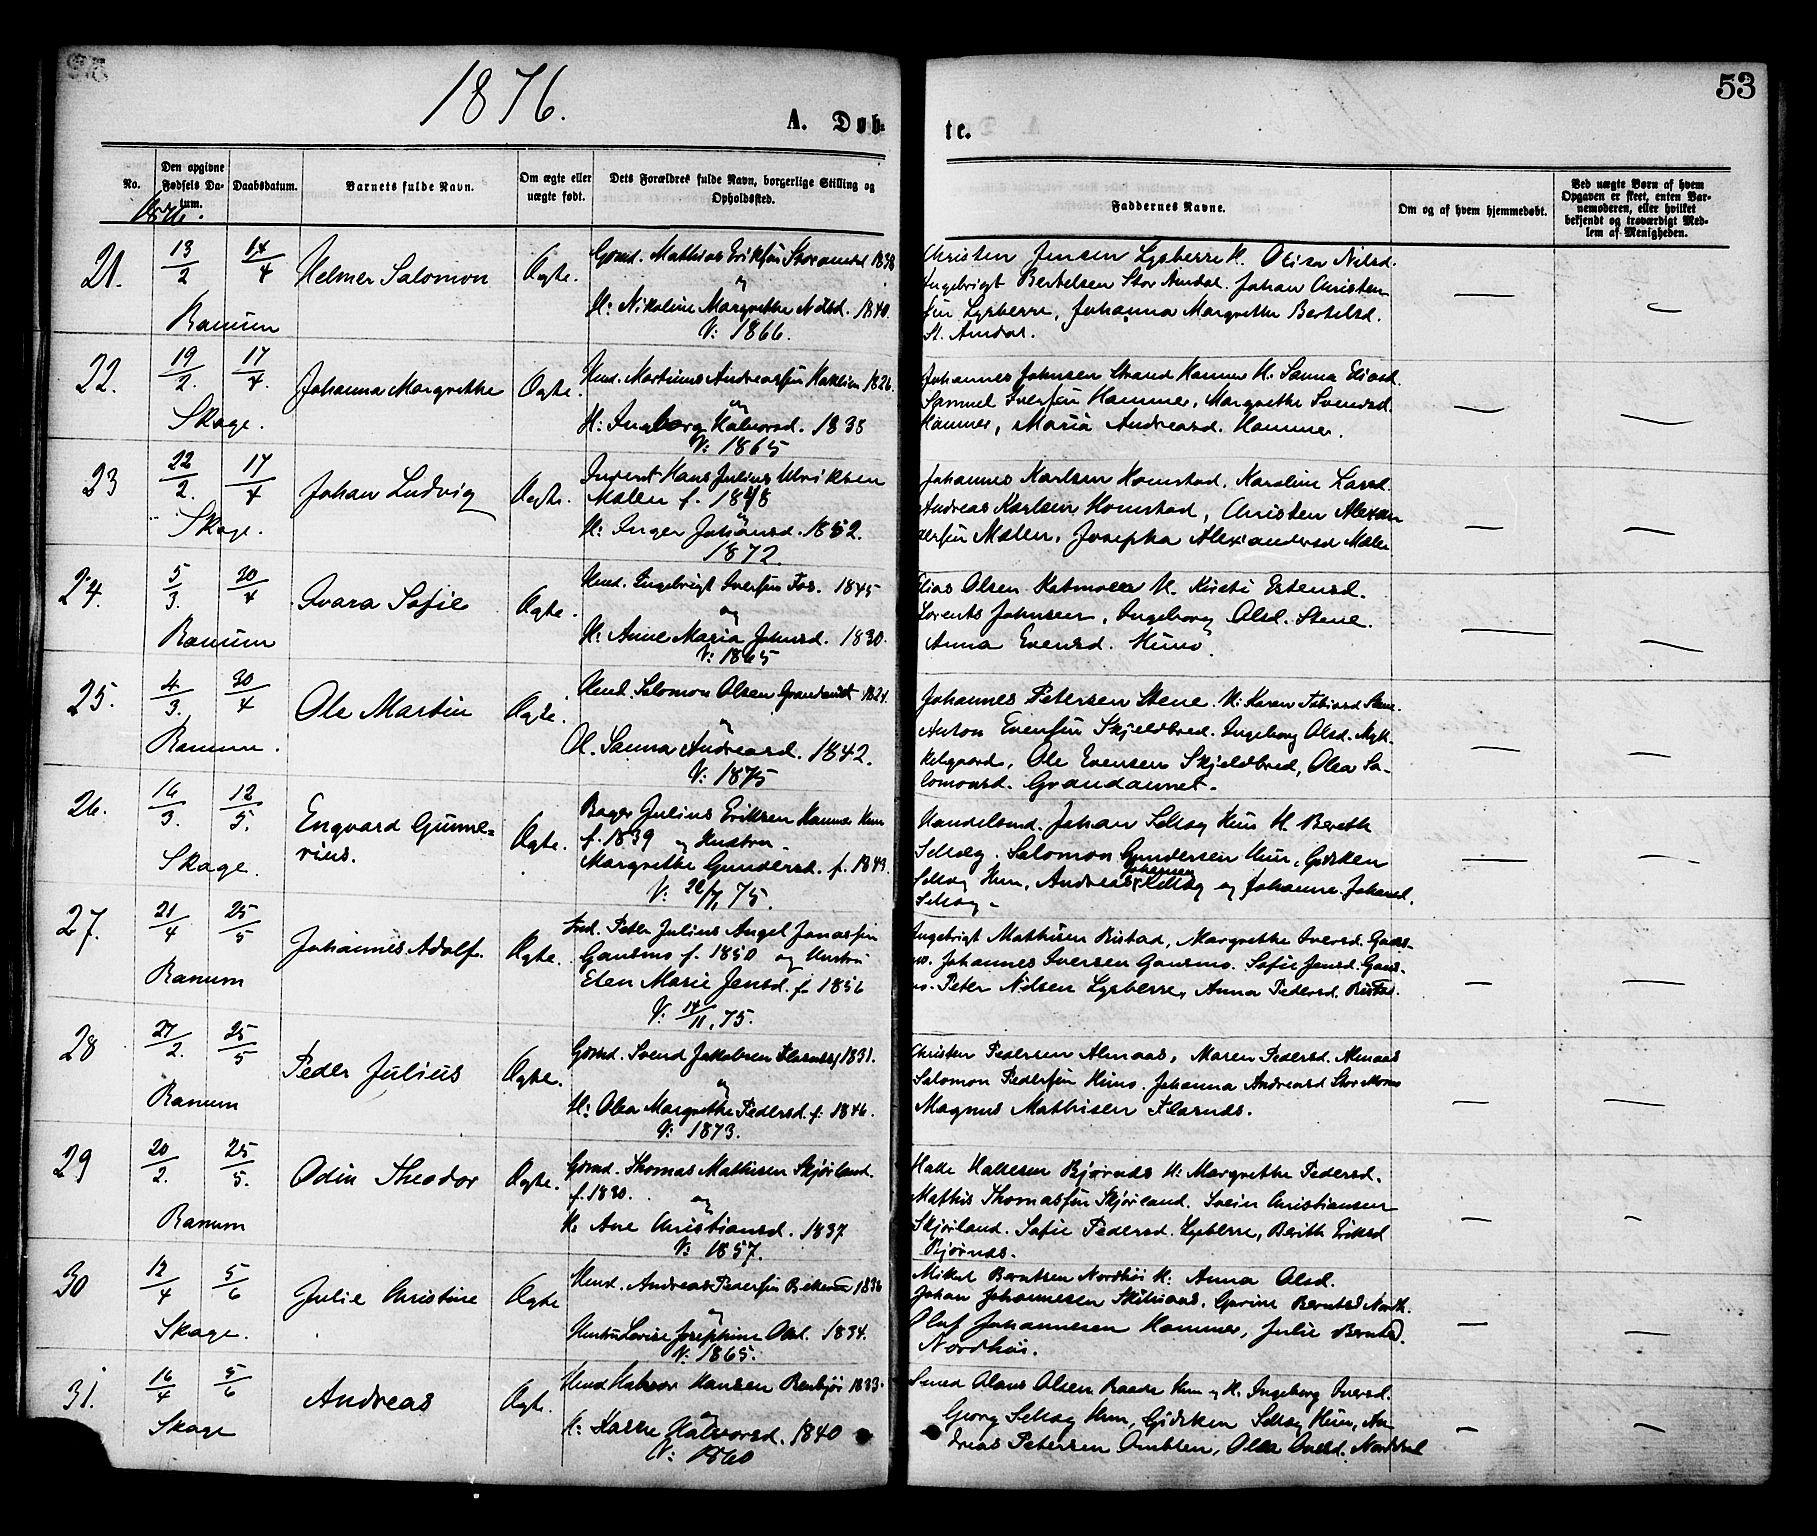 1876.
53
A. Døb-
te.
No.
Den opgivne
Fødsels Da-
tum.
Daabsdatum.
Barnets fulde Navn.
Om ægte eller
uægte født.
Dets Forældres fulde Navn, borgerlige Stilling og
Opholdssted.
Faddernes Navne.
Om og af hvem hjemmedøbt.
Ved uægte Børn af hvem
Opgaven er skeet, enten Bar-
nemoderen, eller hvilket
bekjendt og troværdigt Med-
lem af Menigheden.
1876.
21.
13/2
17/4
Ranum
Helmer Salomon
Ægte.
Gmd. Mathias Eriksøn
og
H: Nikoline Margrethe Nilsd. 1840.
V: 1866.
Christen Jensen Lysberre H. Olisa Nilsd.
Ingebrigt Bertelsen Stor Amdal. Johan Christen
søn Lysberre, Johanna Margrethe Bertelsd.
St. Amdal.
—
22.
19/2.
17/4.
Skage.
Johanna Margrethe
Ægte.
Hmd. Martinus Andreassøn 1826.
og
H: Ingeborg Halvorsd. 1838
V: 1865
Johannes Johnsen Strand Hammer H: Sanna
Samuel Iversøn Hammer, Margrethe Svendsd.
Hammer, Maria Andreasd. Hammer.
—
23
22/2.
17/4
Skage.
Johan Ludvig
Ægte.
Hans Julius Ulriksen
Mælen f. 1848
og
H: Inger Johansd. 1852.
1872.
Johannes Karlsen Homstad. Karoline
Andreas Karlsen Homstad, Christen Alexan
dersøn Mælen, Josepha Alexandersd Mælen
—
24.
5/3.
30/4
Ranum
Ivara Sofie
Ægte.
Hmd. Ingebrigt Iversøn Fos. 1845
og
H: Anne Maria Johnsd. 1830.
V: 1865
Elias Olsen H. Kirsti Estensd.
Lorents Johnsen, Ingeborg Olsd. Stene.
Anna Evensd. Himo.
—
25.
4/3.
30/4
Ranum.
Ole Martin
Ægte.
Salomon Olsen Grandaunet
og
Sanna Andreasd. 1842.
V: 1875
Johannes Petersen Stene. H: Karen
Anton Evensøn Skjeldbred. Ingeborg Olsd. Myk-
kelgaard, Ole Evensen Skjeldbred, Olea Sa-
lomonsd. Grandaunet.
—
26.
16/3.
12/5.
Skage.
Engvard Gunne-
rius.
Ægte.
Bager Julius Eriksen Hammer
f. 1839 og Hustru
Margrethe Gundersd. f. 1843.
V: 22/1, 75.
Handelsmd. Johan Selbæg Hun H. Bereth
Selbæg. Salomon Gundersen Hun, Gidsken
Selbæg Hun, Andreas Johannes Selbæg og Johanna Johansd.
Selbæg.
—
27.
21/4
25/5
Ranum
Johannes Adolf.
Ægte.
Peter Julius Angel Jonassøn
Gansmo f. 1850 og Hustru
Elen Marie Jensd. f. 1856
V: 14/11, 75.
Ingebrigt Mathisen Rustad, Margrethe Iversd. Gans-
mo. Johannes Iversen Gansmo. Sofie Jensd. Gans-
mo. Peter Nilsen Lysberre, Anna Pedersd. Rustad.
—
28
27/2.
25/5
Ranum
Peder Julius
Ægte.
Gmd. Svend Jakobsen 1831.
og
H: Olea Margrethe Pedersd. f. 1846.
V: 1873.
Christen Pedersen Almaas, Maren Pedersd. Almaas
Salomon Pedersøn Himo. Johanna Andreasd Stor Momo
Magnus Mathisen Flasnæs.
—
29
20/2.
25/5.
Ranum
Odin Theodor
Ægte.
Gmd. Thomas Mathisen Skjørland.
f. 1830.
og
H. Ane Christiansd. 1837
V: 1857.
Halle Hallesen Bjørnæs H: Margrethe Pedersd.
Mathis Thomassøn Skjørland. Svein Christiansen
Skjørland. Sofie Pedersd. Lysberre, Berith Eriksd
Bjørnæs.
—
30
12/4
5/6
Skage.
Julie Christine
Ægte
Hmd. Andreas Pedersøn 1836
og
Hustru Lovise Josephine Olsd. 1834.
V: 1865.
Mikal Berntsen Nordhøi H: Anna Olsd.
Johan Johannesen, Gurine Berntsd Nordh.
Olaf Johannesen Hammer, Julie Berntsd.
Nordhøi.
—
31.
16/4
5/6
Skage
Andreas
Ægte.
Hmd Halvor Hansen 1833.
og
H: Halvorsd. 1840
V: 1860
Smed Olaus Olsen Hun og H. Ingeborg Iversd.
Georg Selbæg Hun, Gidsken Selbæg Hun, An-
dreas Petersen, Olea
—